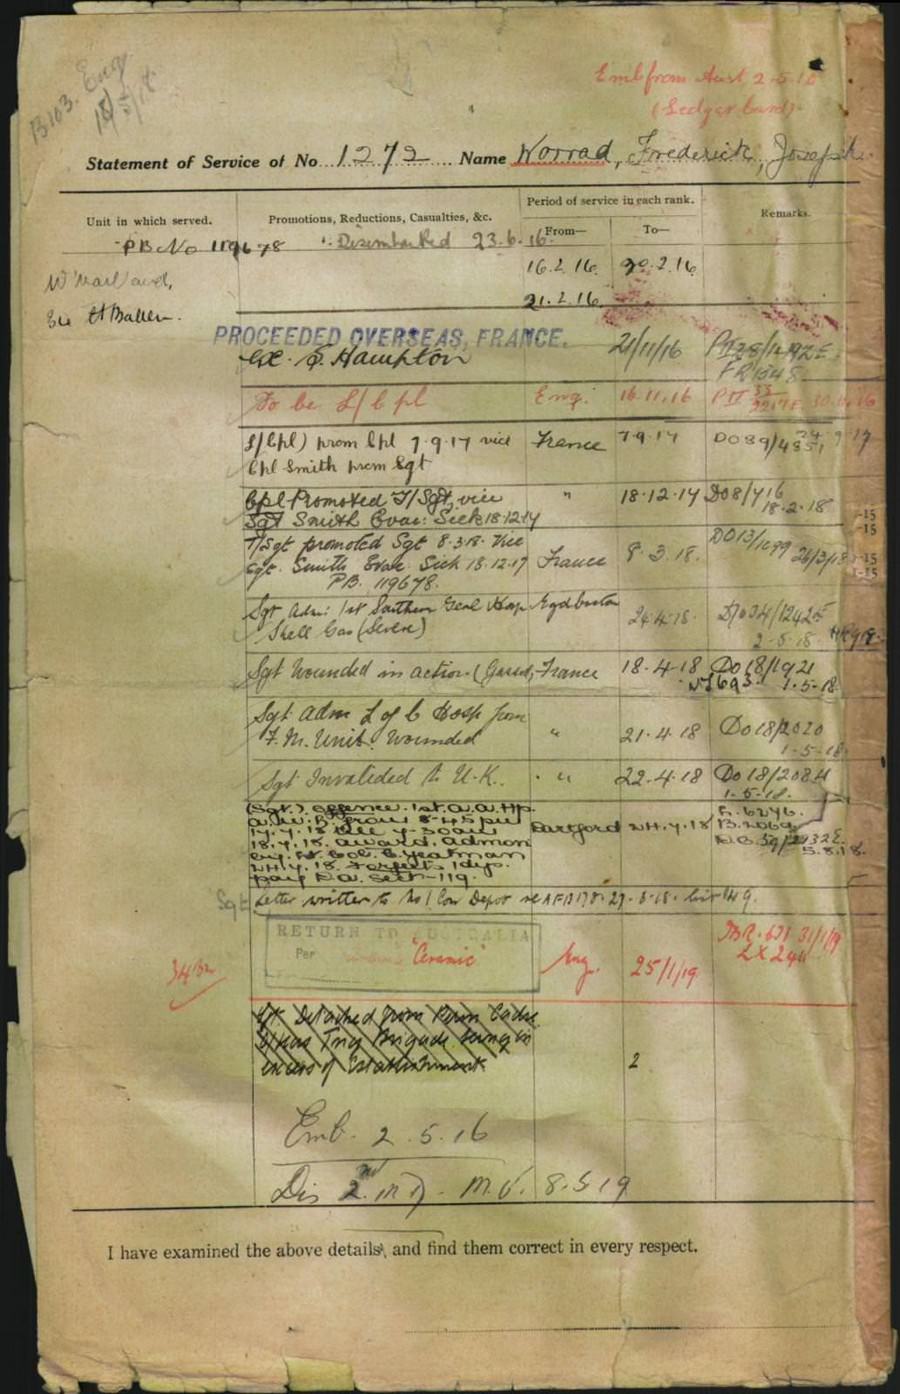 B103. Eng
15/5/18
Emb from Aust 2.5.16
(Ledger Card)
Statement of Service of No. 1272 Name Worrad, Frederick, Joseph
Unit in which served.
Promotions, Reductions, Casualties, &c.
Period of service in each rank.
From—
To—
Remarks.
PB No 119678
Disembarked 23.6.16
W'mail and,
16.2.16 20.2.16
Ex H Ballen.
21.2.16
PROCEEDED OVERSEAS, FRANCE.
S. Hampton
21/11/16
To be L/Cpl Eng. 16.11.16
L/Cpl) prom Cpl 7.9.17 vice France 7.9.17 DO89/4851
Cpl Smith prom Sgt
Cpl Promoted T/Sgt, vice " 18.12.17 DO8/716
Sgt Smith Evac: Sick 18.12.17 18.2.18
T/Sgt promoted Sgt 8.3.18 Vice
Sgt. Smith Evac Sick 18.12.17 France 8.3.18. DO13/1699 26/3/18
PB. 119678.
Sgt Adm: 1st Southern Genl Hosp Egdbaston 24.4.18 DO34/1242E
Shell Gas (Severe) 2-5-18
Sgt Wounded in action (Gassed) France 18.4.18 DO18/1921
1.5.18
Sgt Adm L of C Hosp from
F.M. Unit. Wounded " 21.4.18 DO18/2020
1-5-18
Sgt Invalided to U.K. " 22.4.18 DO18/2084
1.5.18.
(Sgt.) Offence. 1st. A.A.Hp.
A.W. from 8-45 pm
17.7.18 till 4-30 am
18.7.18. award. Admon
by. Lt Col. C Yeatman
24.7.18. Forfeits 1 days.
pay R.W. Sect-119.
Dartford 24.7.18
5.8.18.
Sgt Letter written to No 1 Con Depot re AFB178. 27.
RETURN TO AUSTRALIA
Per "Ceramic"
Eng. 25/1/19 31/1/19
Sgt. Detached from Perm Cadre
O/seas Trng Brigade being in
excess of Establishment
2
Emb. 2.5.16
Dis 2nd M.D. M.U. 8.5.19
I have examined the above details, and find them correct in every respect.